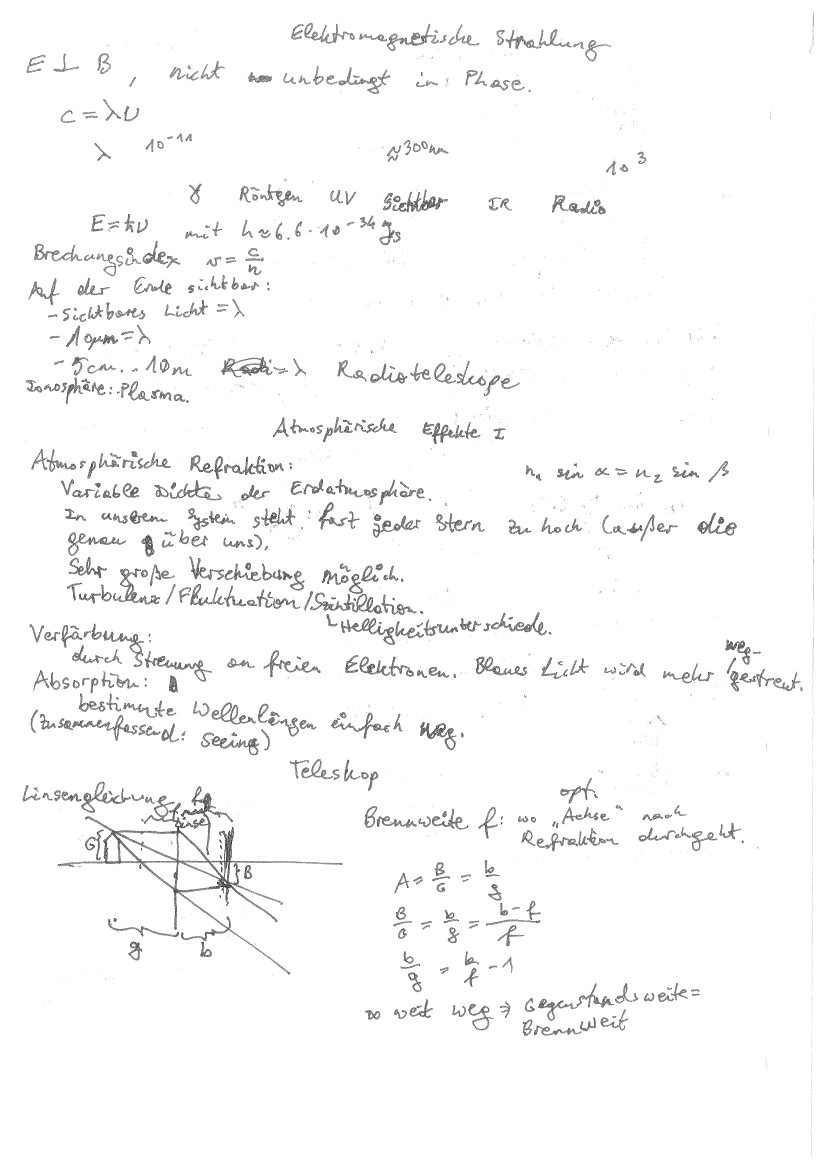 Elektromagnetische Strahlung
E ⊥ B, nicht unbedingt in Phase.
c = λν
λ 10⁻¹¹ ≈300nm 10³
γ Röntgen UV Sichtbar IR Radio
E = ħν mit h ≈ 6.6 · 10⁻³⁴ Js
Brechungsindex v = c/n
Auf der Erde sichtbar:
- Sichtbares Licht = λ
- 10μm = λ
- 5cm...10m = λ Radioteleskope
Ionosphäre: Plasma.
Atmosphärische Effekte I
Atmosphärische Refraktion: n₁ sin α = n₂ sin β
Variable Dichte der Erdatmosphäre.
In unserem System steht fast jeder Stern zu hoch (außer die
genau über uns).
Sehr große Verschiebung möglich.
Turbulenz/Fluktuation/Szintillation.
Helligkeitsunterschiede.
Verfärbung:
durch Streuung an freien Elektronen. Blaues Licht wird mehr weg-gestreut.
Absorption:
bestimmte Wellenlängen einfach weg.
(Zusammenfassend: Seeing)
Teleskop
Linsengleichung
Linse
G B
g b
Brennweite f: wo opt. „Achse" nach
Refraktion durchgeht.
A = B/G = b/g
B/G = b/g = (b-f)/f
b/g = b/f - 1
∞ weit weg ⇒ Gegenstandsweite =
Brennweit